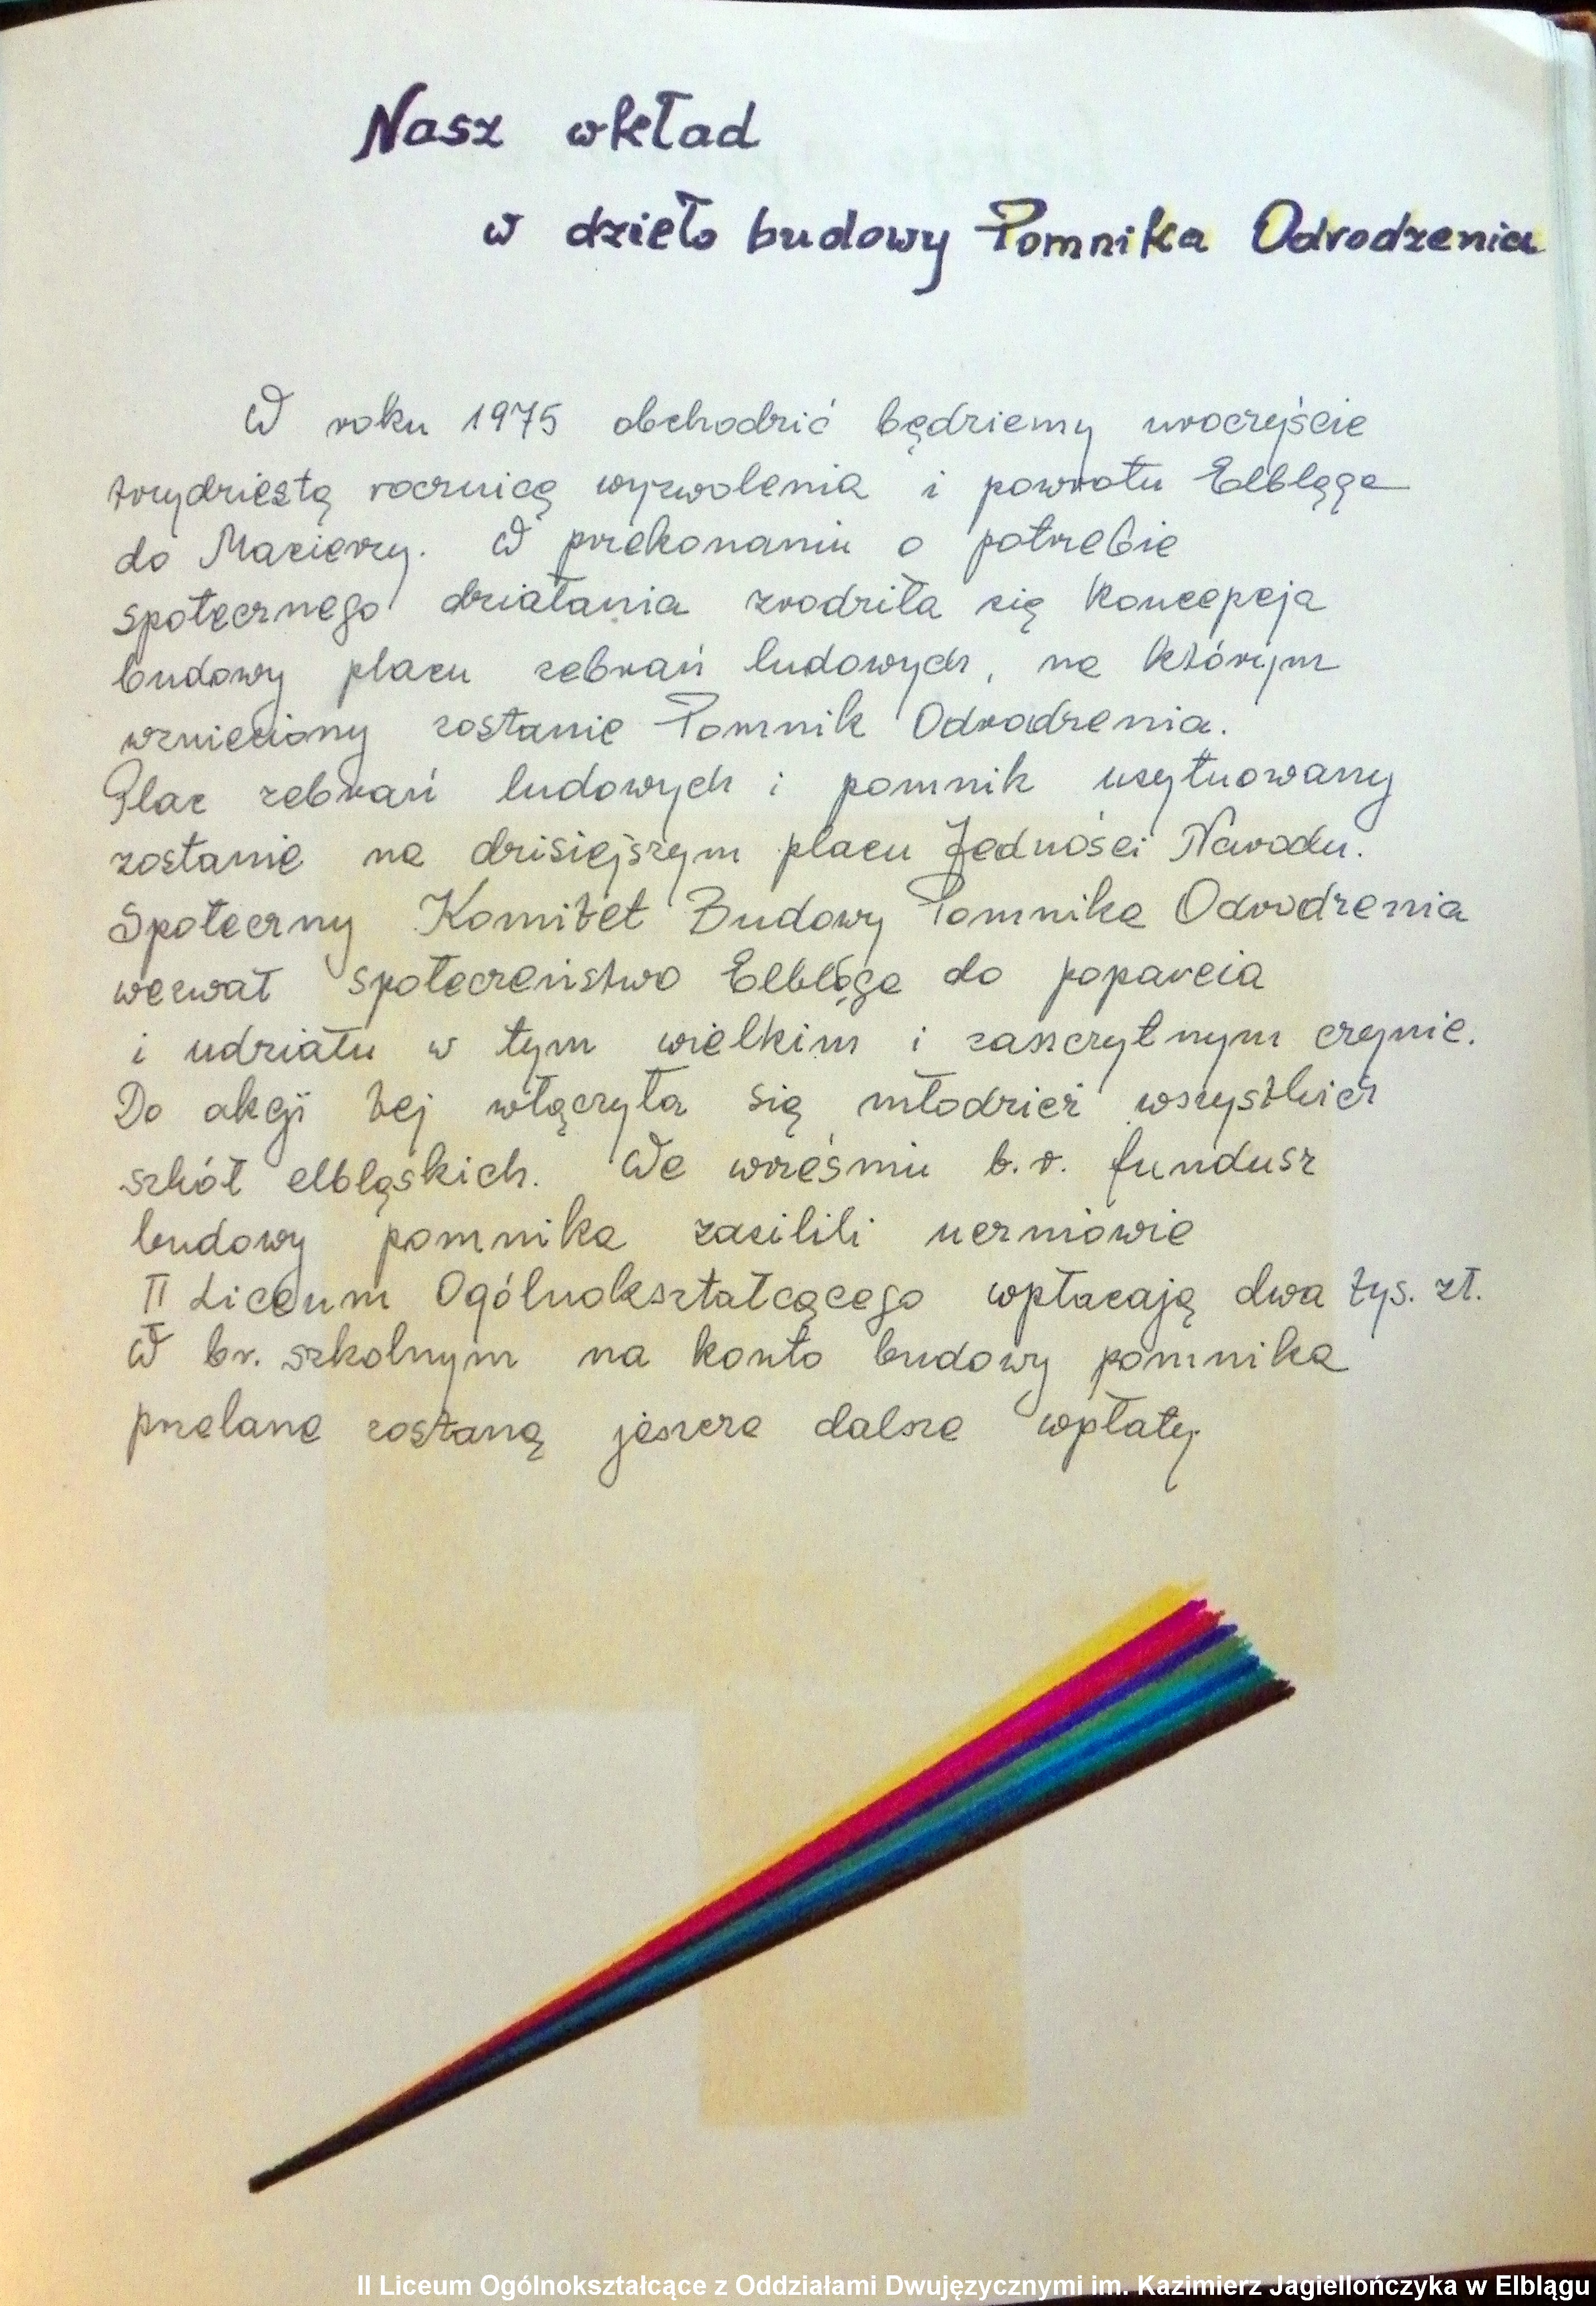 Nasz wkład
w dzieło budowy Pomnika Odrodzenia
W roku 1975 obchodzić będziemy uroczyście
trzydziestą rocznicę wyzwolenia i powrotu Elbląga
do Macierzy. W przekonaniu o potrzebie
społecznego działania zrodziła się koncepcja
budowy placu zebrań ludowych, na którym
wzniesiony zostanie Pomnik Odrodzenia.
Plac zebrań ludowych i pomnik usytuowany
zostanie na dzisiejszym placu Jedności Narodu.
Społeczny Komitet Budowy Pomnika Odrodzenia
wezwał społeczeństwo Elbląga do poparcia
i udziału w tym wielkim i zaszczytnym czynie.
Do akcji tej włączyła się młodzież wszystkich
szkół elbląskich. We wrześniu b.r. fundusz
budowy pomnika zasilili uczniowie
II Liceum Ogólnokształcącego wpłacają dwa tys. zł.
W br. szkolnym na konto budowy pomnika
przelane zostaną jeszcze dalsze wpłaty.
II Liceum Ogólnokształcące z Oddziałami Dwujęzycznymi im. Kazimierz Jagiellończyka w Elblągu